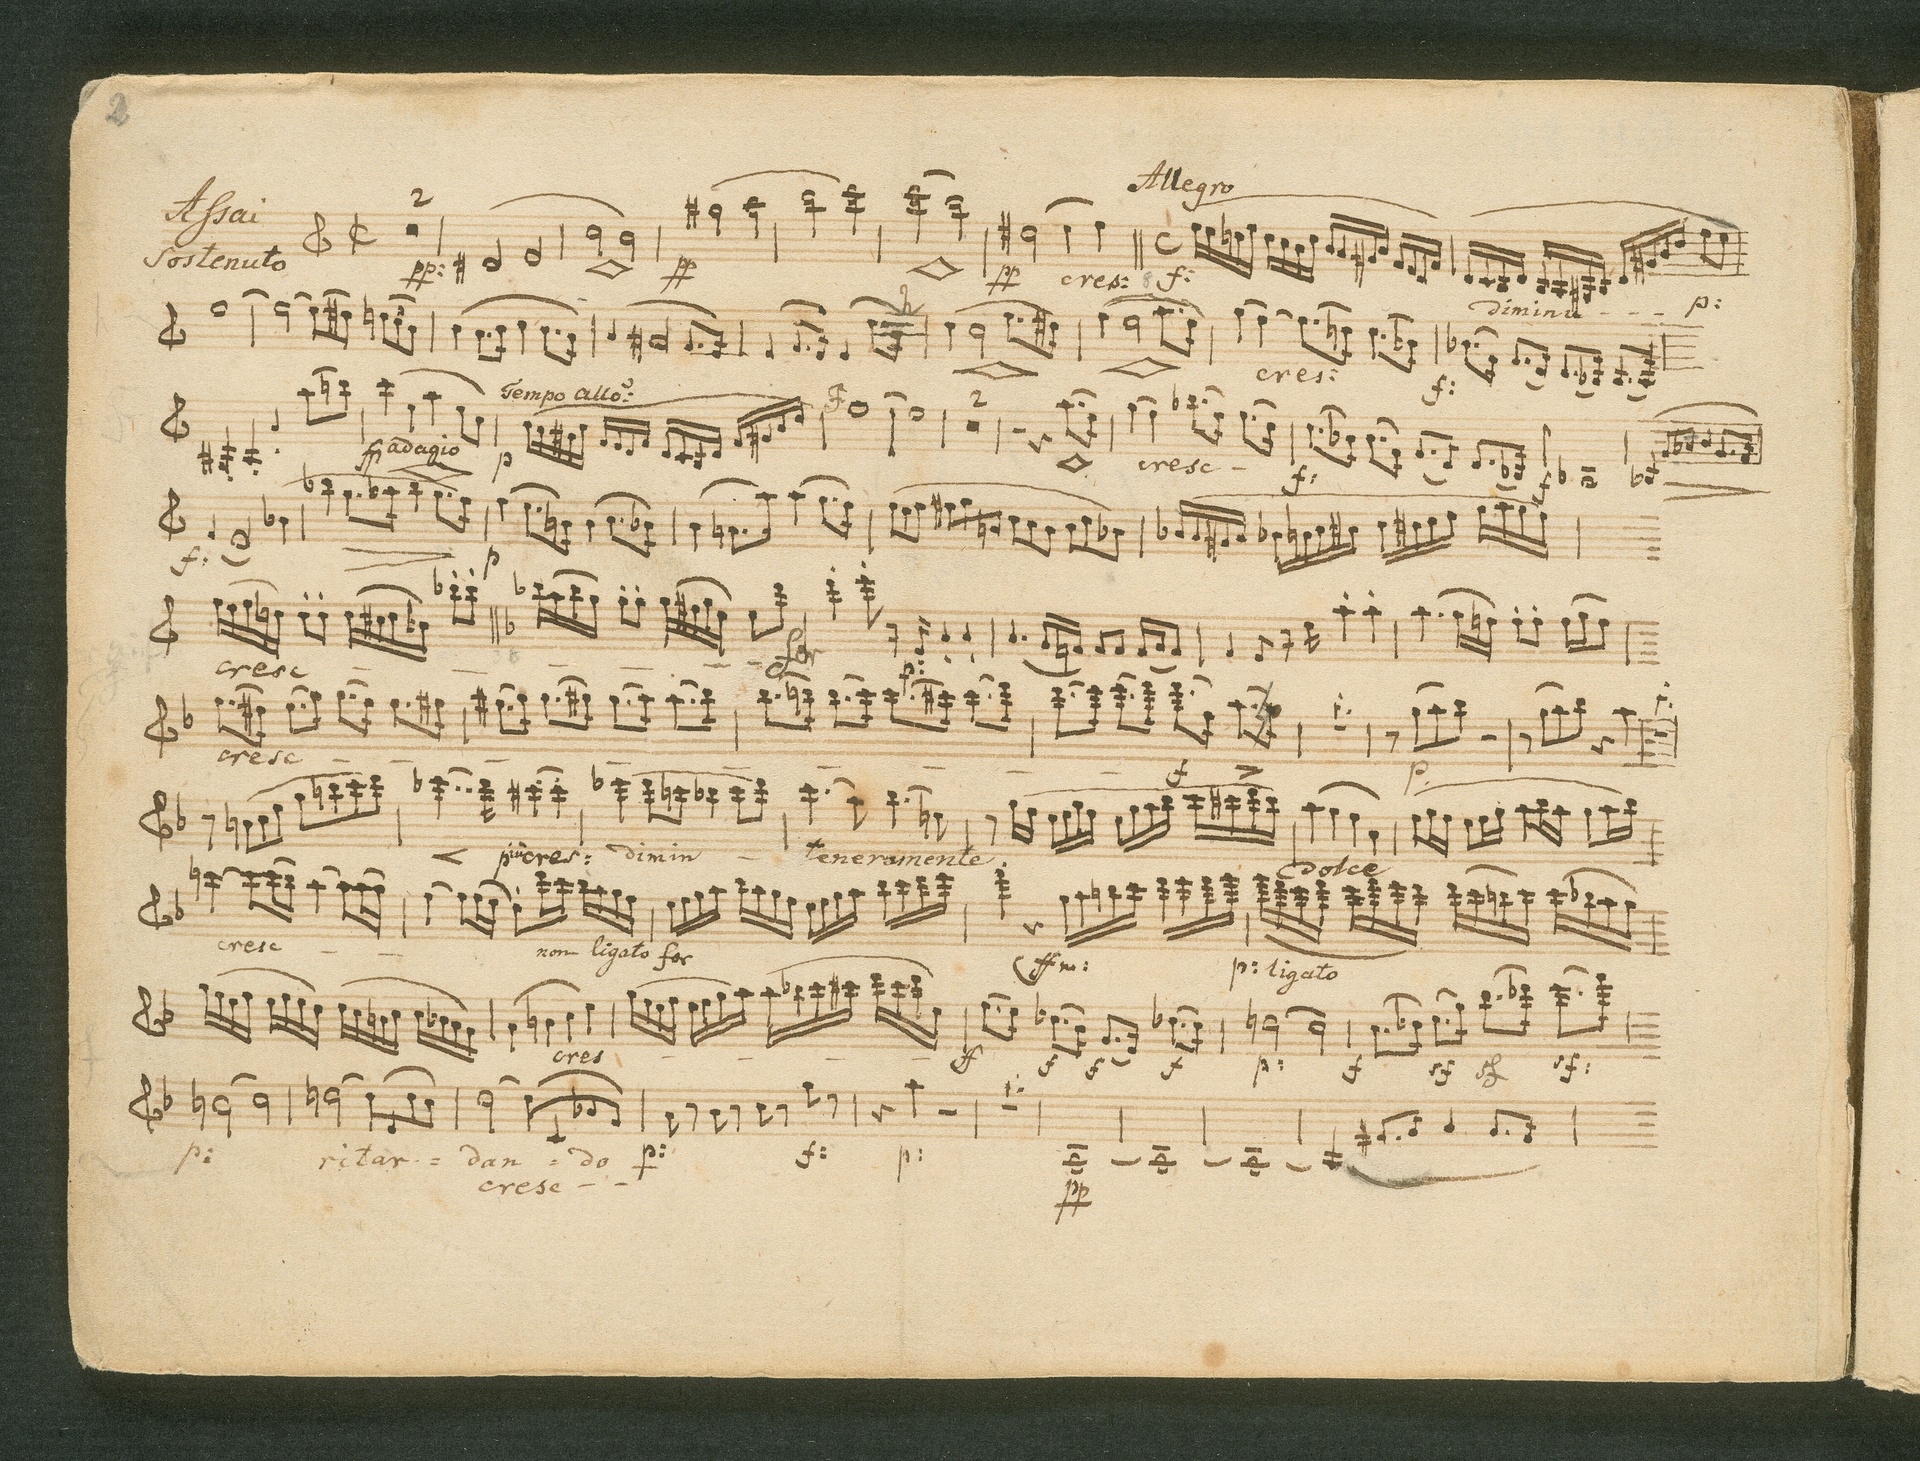 2
Allegro
Assai 2
Sostenuto pp: pp pp cres: f:
diminu - - - p:
cres: f:
Tempo allo:
fp adagio p cresc - f: f
f: p
cresc - - - - - for p:
cresc - - - - - - - - f p:
< più cres: dimin - teneramente: dolce
cresc - - non ligato for ffmo: p: ligato
cres - - - - f f f f p: f sf sf sf:
p: ritar = dan = do p: f: p:
cresc - - pp